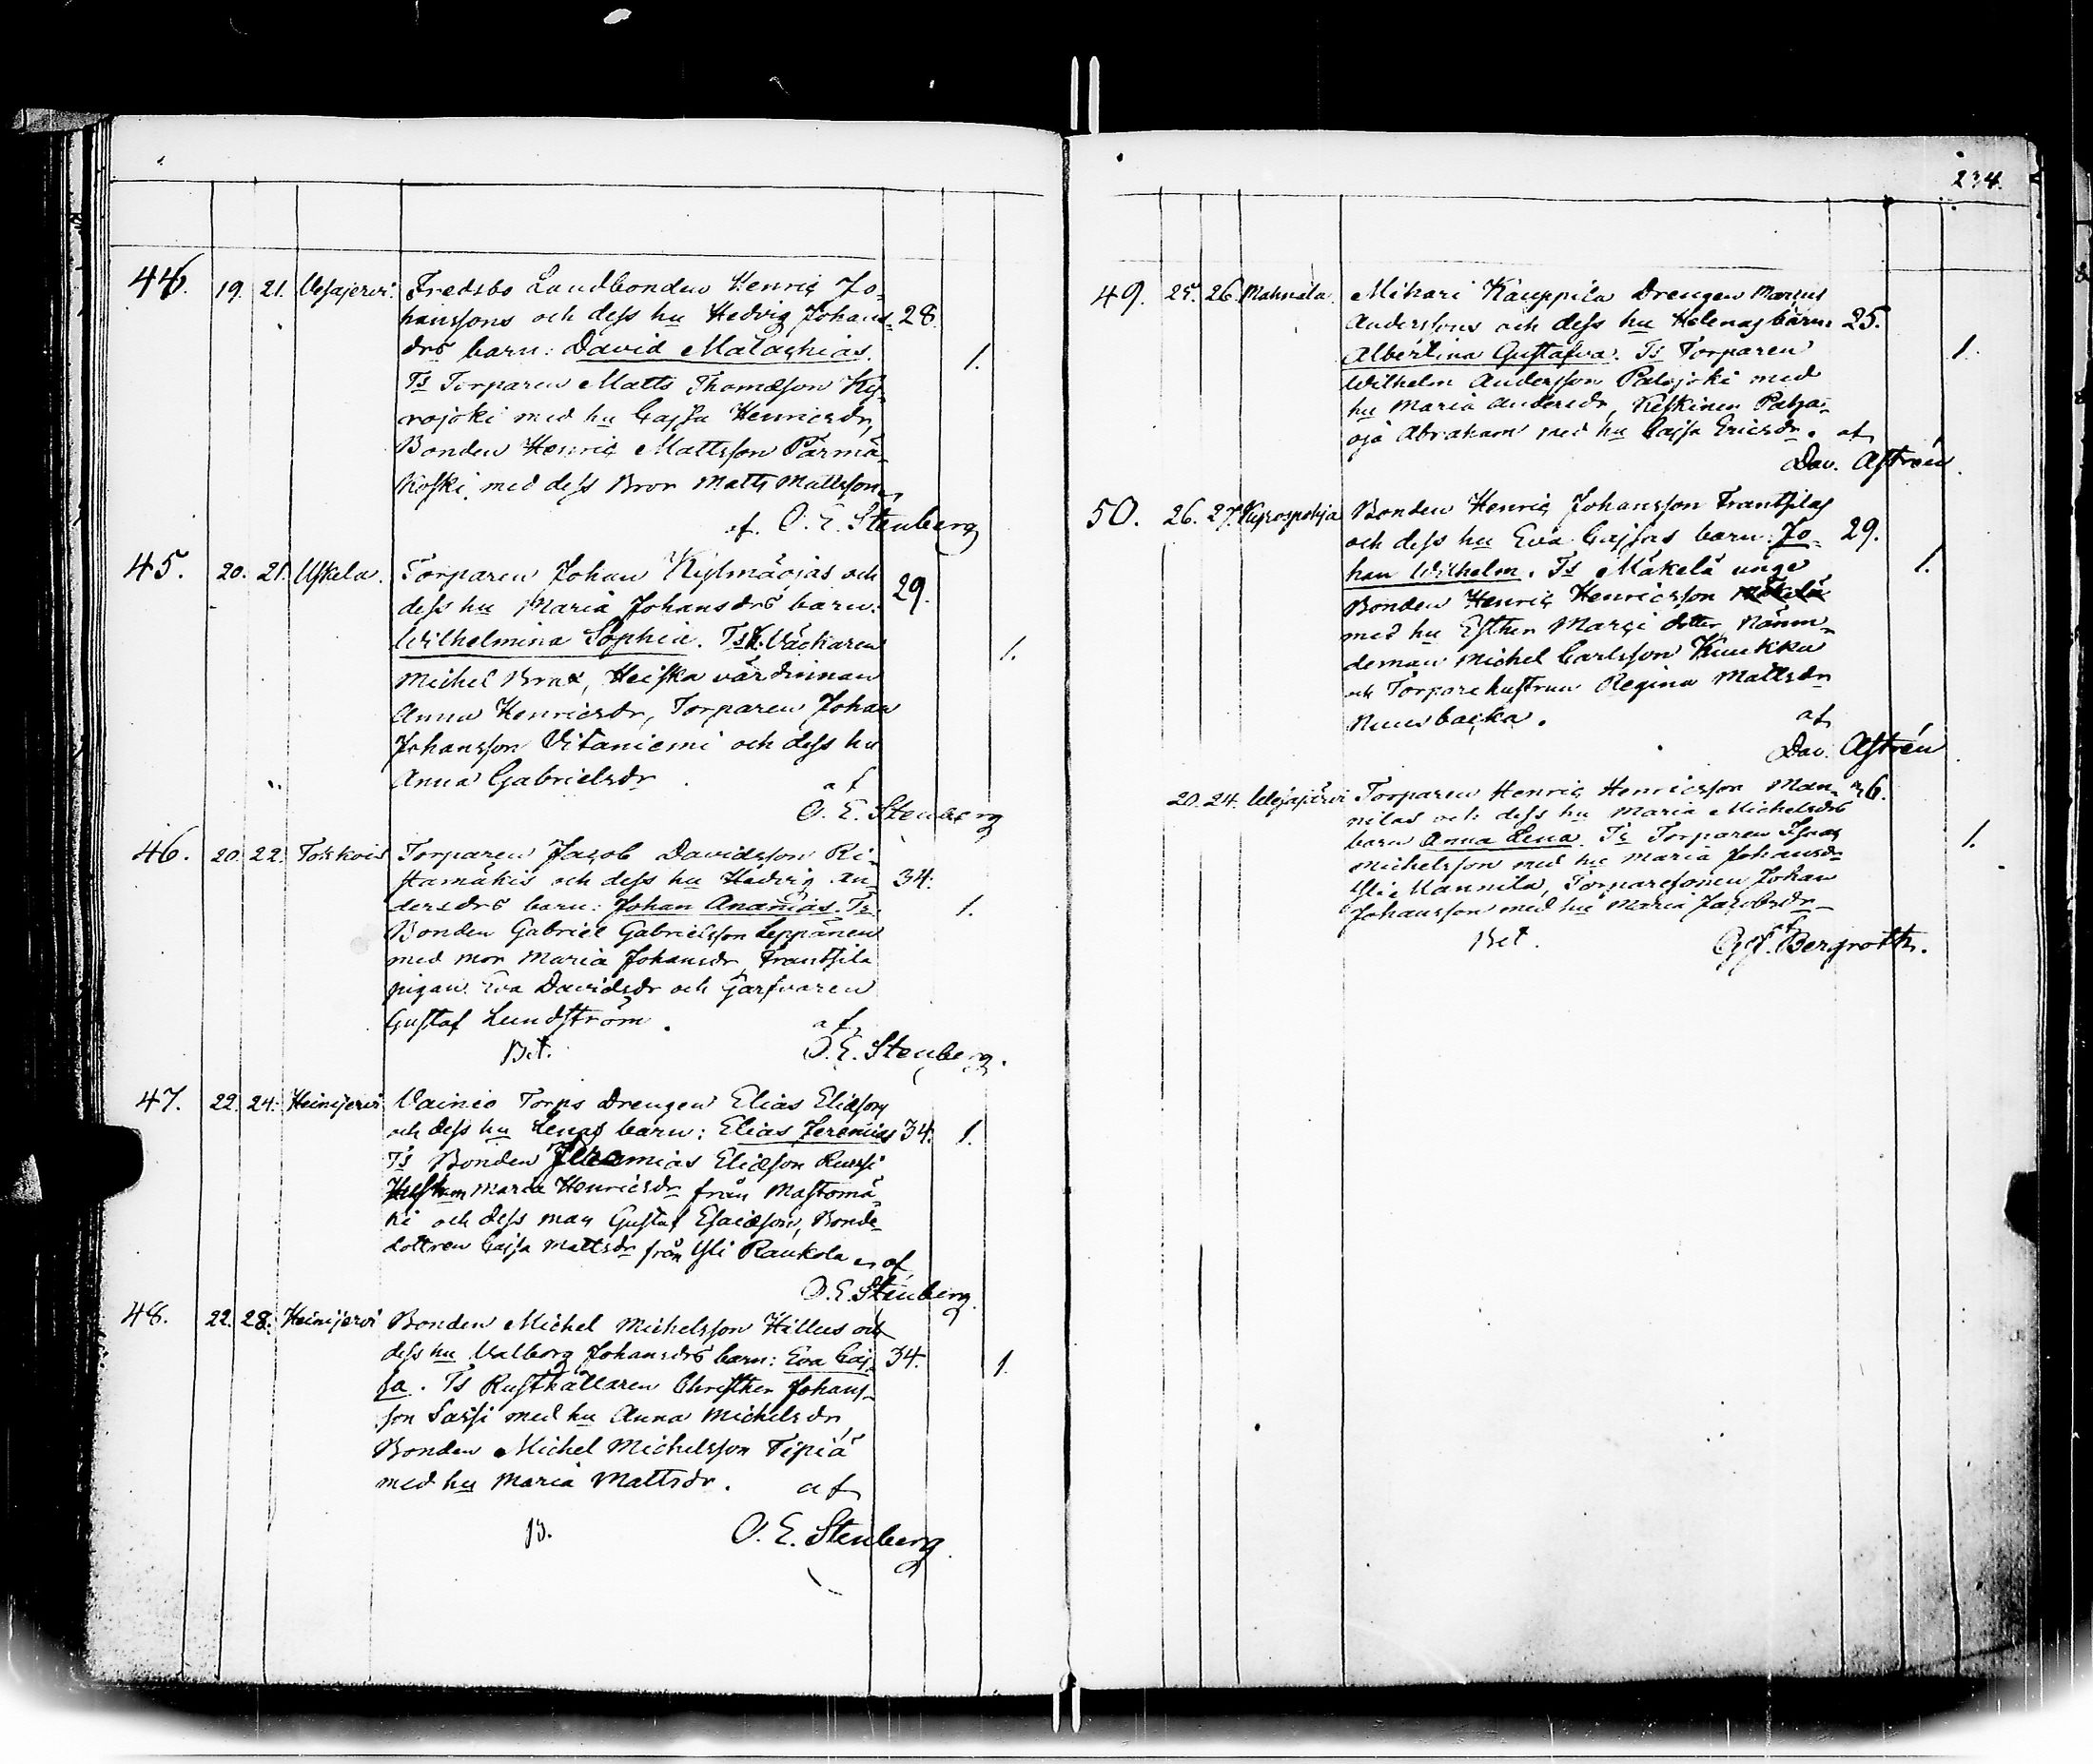 234.
44. 19. 21. Vesajervi. Fredsbo Landbonden Henric Jo-
hanssons och dess hu Hedvig Johans- 28.
drs barn: David Malachias. 1.
Ts Torparen Matts Thomasson Ky-
rojoki med hu Cajsa Henricsdr,
Bonden Henric Mattsson Pärmä-
koski med dess Bror Matts Mattsson
af O. E. Stenberg
45. 20. 21. Uskela. Torparen Johan Kylmäojas och
dess hu Maria Johansdrs barn: 29.
Wilhelmina Sophia. Ts K. Väckaren 1.
Michel Brax, Heiska värdinnan
Anna Henricsdr, Torparen Johan
Johansson Vitaniemi och dess hu
Anna Gabrielsdr. af
O. E. Stenberg
46. 20. 22. Torparen Jacob Davidsson Ri-
stamäkis och dess hu Hedvig An- 34.
dersdrs barn: Johan Ananias. Ts. 1.
Bonden Gabriel Gabrielsson Leppänen
med mor Maria Johansdr Frantsila
pigan Eva Davidsdr och Garfvaren
Gustaf Lundström. af
Bet. O. E. Stenberg.
47. 22. 24. Heinijervi Vainio Torps Drengen Elias Eliæson
och dess hu Lenas barn: Elias Jeremias 34. 1.
Ts Bonden Jeremias Eliæson Russi
Hustrun Maria Henricsdr från Mastomä-
ki och dess man Gustaf Esaiæson, Bonde-
dottren Cajsa Mattsdr från Yli Raukola af
O. E. Stenberg.
48. 22. 28. Heinijervi Bonden Michel Michelsson Hillus och
dess hu Valborg Johansdrs barn: Eva Caj- 34. 1.
sa. Ts Rusthållaren Christher Johans-
son Sassi med hu Anna Michelsdr,
Bonden Michel Michelsson Tipiä
med hu Maria Mattsdr. af
B. O. E. Stenberg.
49. 25. 26. Mahnala. Mihari Kauppila Drengen Marcus
Anderssons och dess hu Helenas barn: 25.
Albertina Gustafva. Ts Torparen 1.
Wilhelm Andersson Palojoki med
hu Maria Andersdr, Keskinen
oja Abraham med hu Cajsa Ericsdr. af
Dav. Astrén.
50. 26. 27. Kyrospohja Bonden Henric Johansson Frantsilas
och dess hu Eva Cajsas barn: Jo- 29.
han Wilhelm. Ts Mäkelä unge 1.
Bonden Henric Henricsson Mäkelä
med hu Esther Marci dotter, Nämn-
deman Michel Carlsson Kuukka
och Torpare hustrun Regina Mattsdr
Nuusbacka. af
Dav. Astrén
20. 24. Vesajärvi Torparen Henric Henricsson Man- 26.
nilas och dess hu Maria Michelsdrs
barn Anna Lena. Ts Torparen Isaac 1.
Michelsson med hu Maria Johansdr
Yli Mannila, Torparesonen Johan
Johansson med hu Maria Jacobsdr
Bet. af
Bergroth.